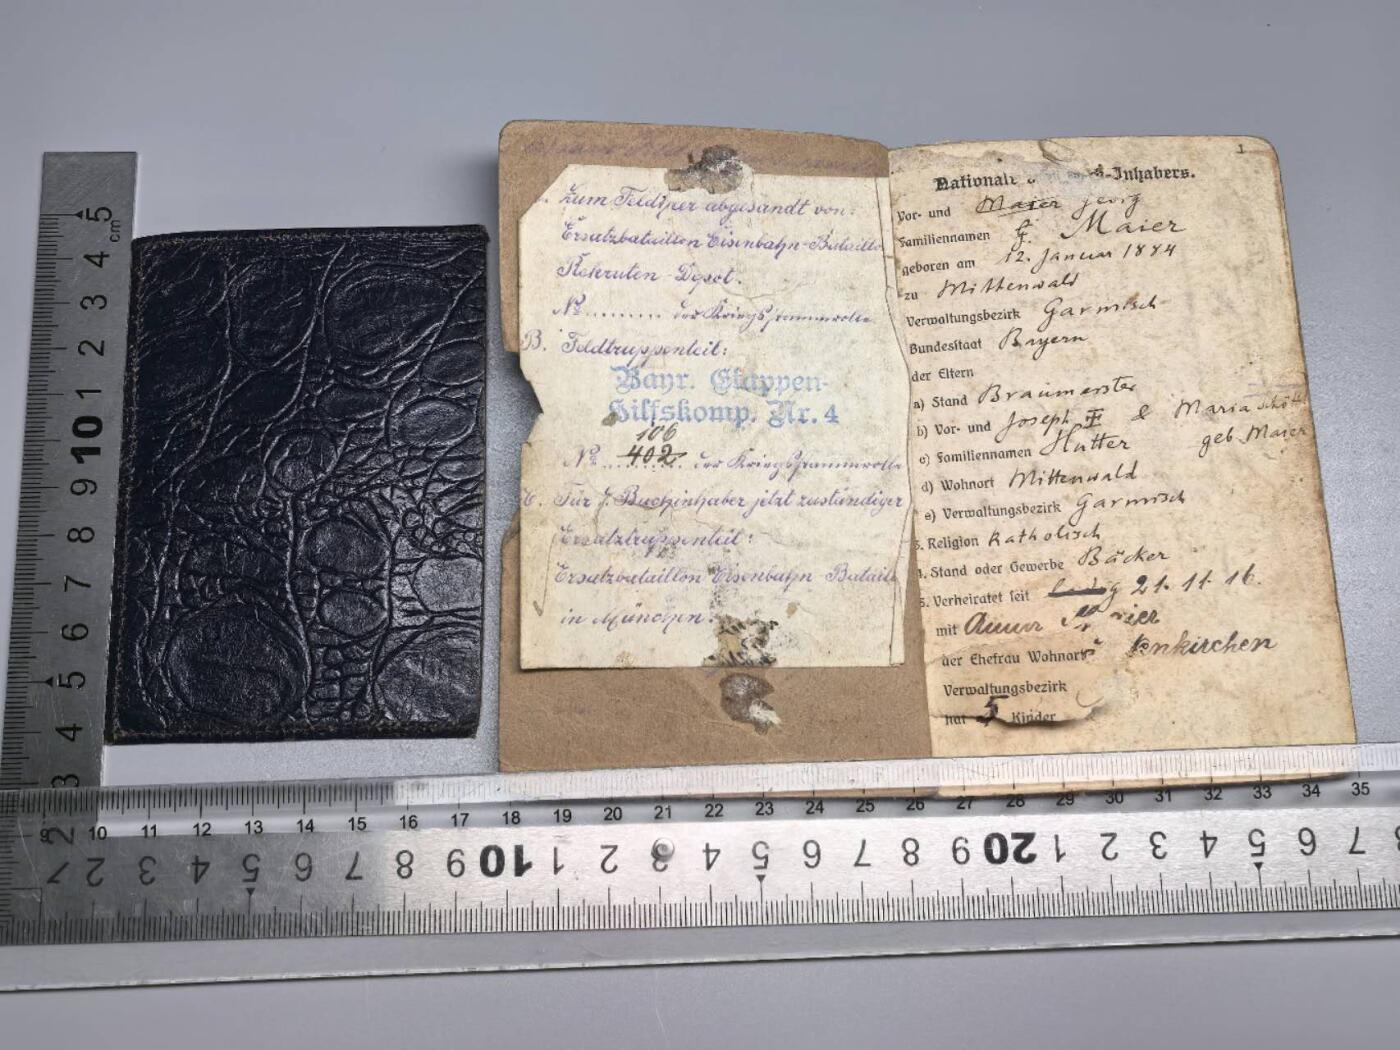 Zum Feldheer abgesandt von:
Ersatzbataillon Eisenbahn-Bataillo
Rekruten-Depot.
№ ........ der Kriegsstammrolle
B. Feldtruppenteil:
Bayr. Etappen-
Hilfskomp. Nr. 4
106
№ 402 der Kriegsstammrolle
C. Für d. Buchinhaber jetzt zuständiger
Ersatztruppenteil:
Ersatzbataillon Eisenbahn Batail
in München.
1
Nationale -Inhabers.
Vor- und Maier Georg
Familiennamen G. Maier
geboren am 12. Januar 1884
zu Mittenwald
Verwaltungsbezirk Garmisch
Bundesstaat Bayern
der Eltern
a) Stand Braumeister
b) Vor- und Joseph & Maria
c) Familiennamen Hutter geb. Maier
d) Wohnort Mittenwald
e) Verwaltungsbezirk Garmisch
3. Religion Katholisch
4. Stand oder Gewerbe Bäcker
5. Verheiratet seit ledig 21. 11. 16.
mit
der Ehefrau Wohnort enkirchen
Verwaltungsbezirk
hat 5 Kinder
5 cm 4 3 2 1 10 9 8 7 6 5 4 3 2
10 11 12 13 14 15 16 17 18 19 20 21 22 23 24 25 26 27 28 29 30 31 32 33 34 35
2 3 4 5 6 7 8 9 10 1 2 3 4 5 6 7 8 9 20 1 2 3 4 5 6 7